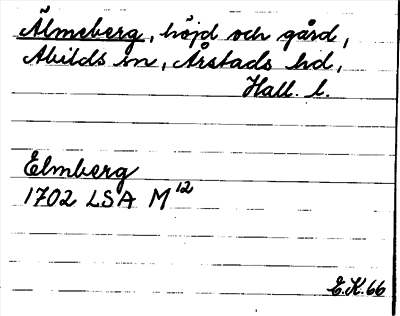 Älmeberg, höjd och gård,
Abilds sn, Årstads hd,
Hall. l.
Elmberg
1702 LSA M12
E.K. 66